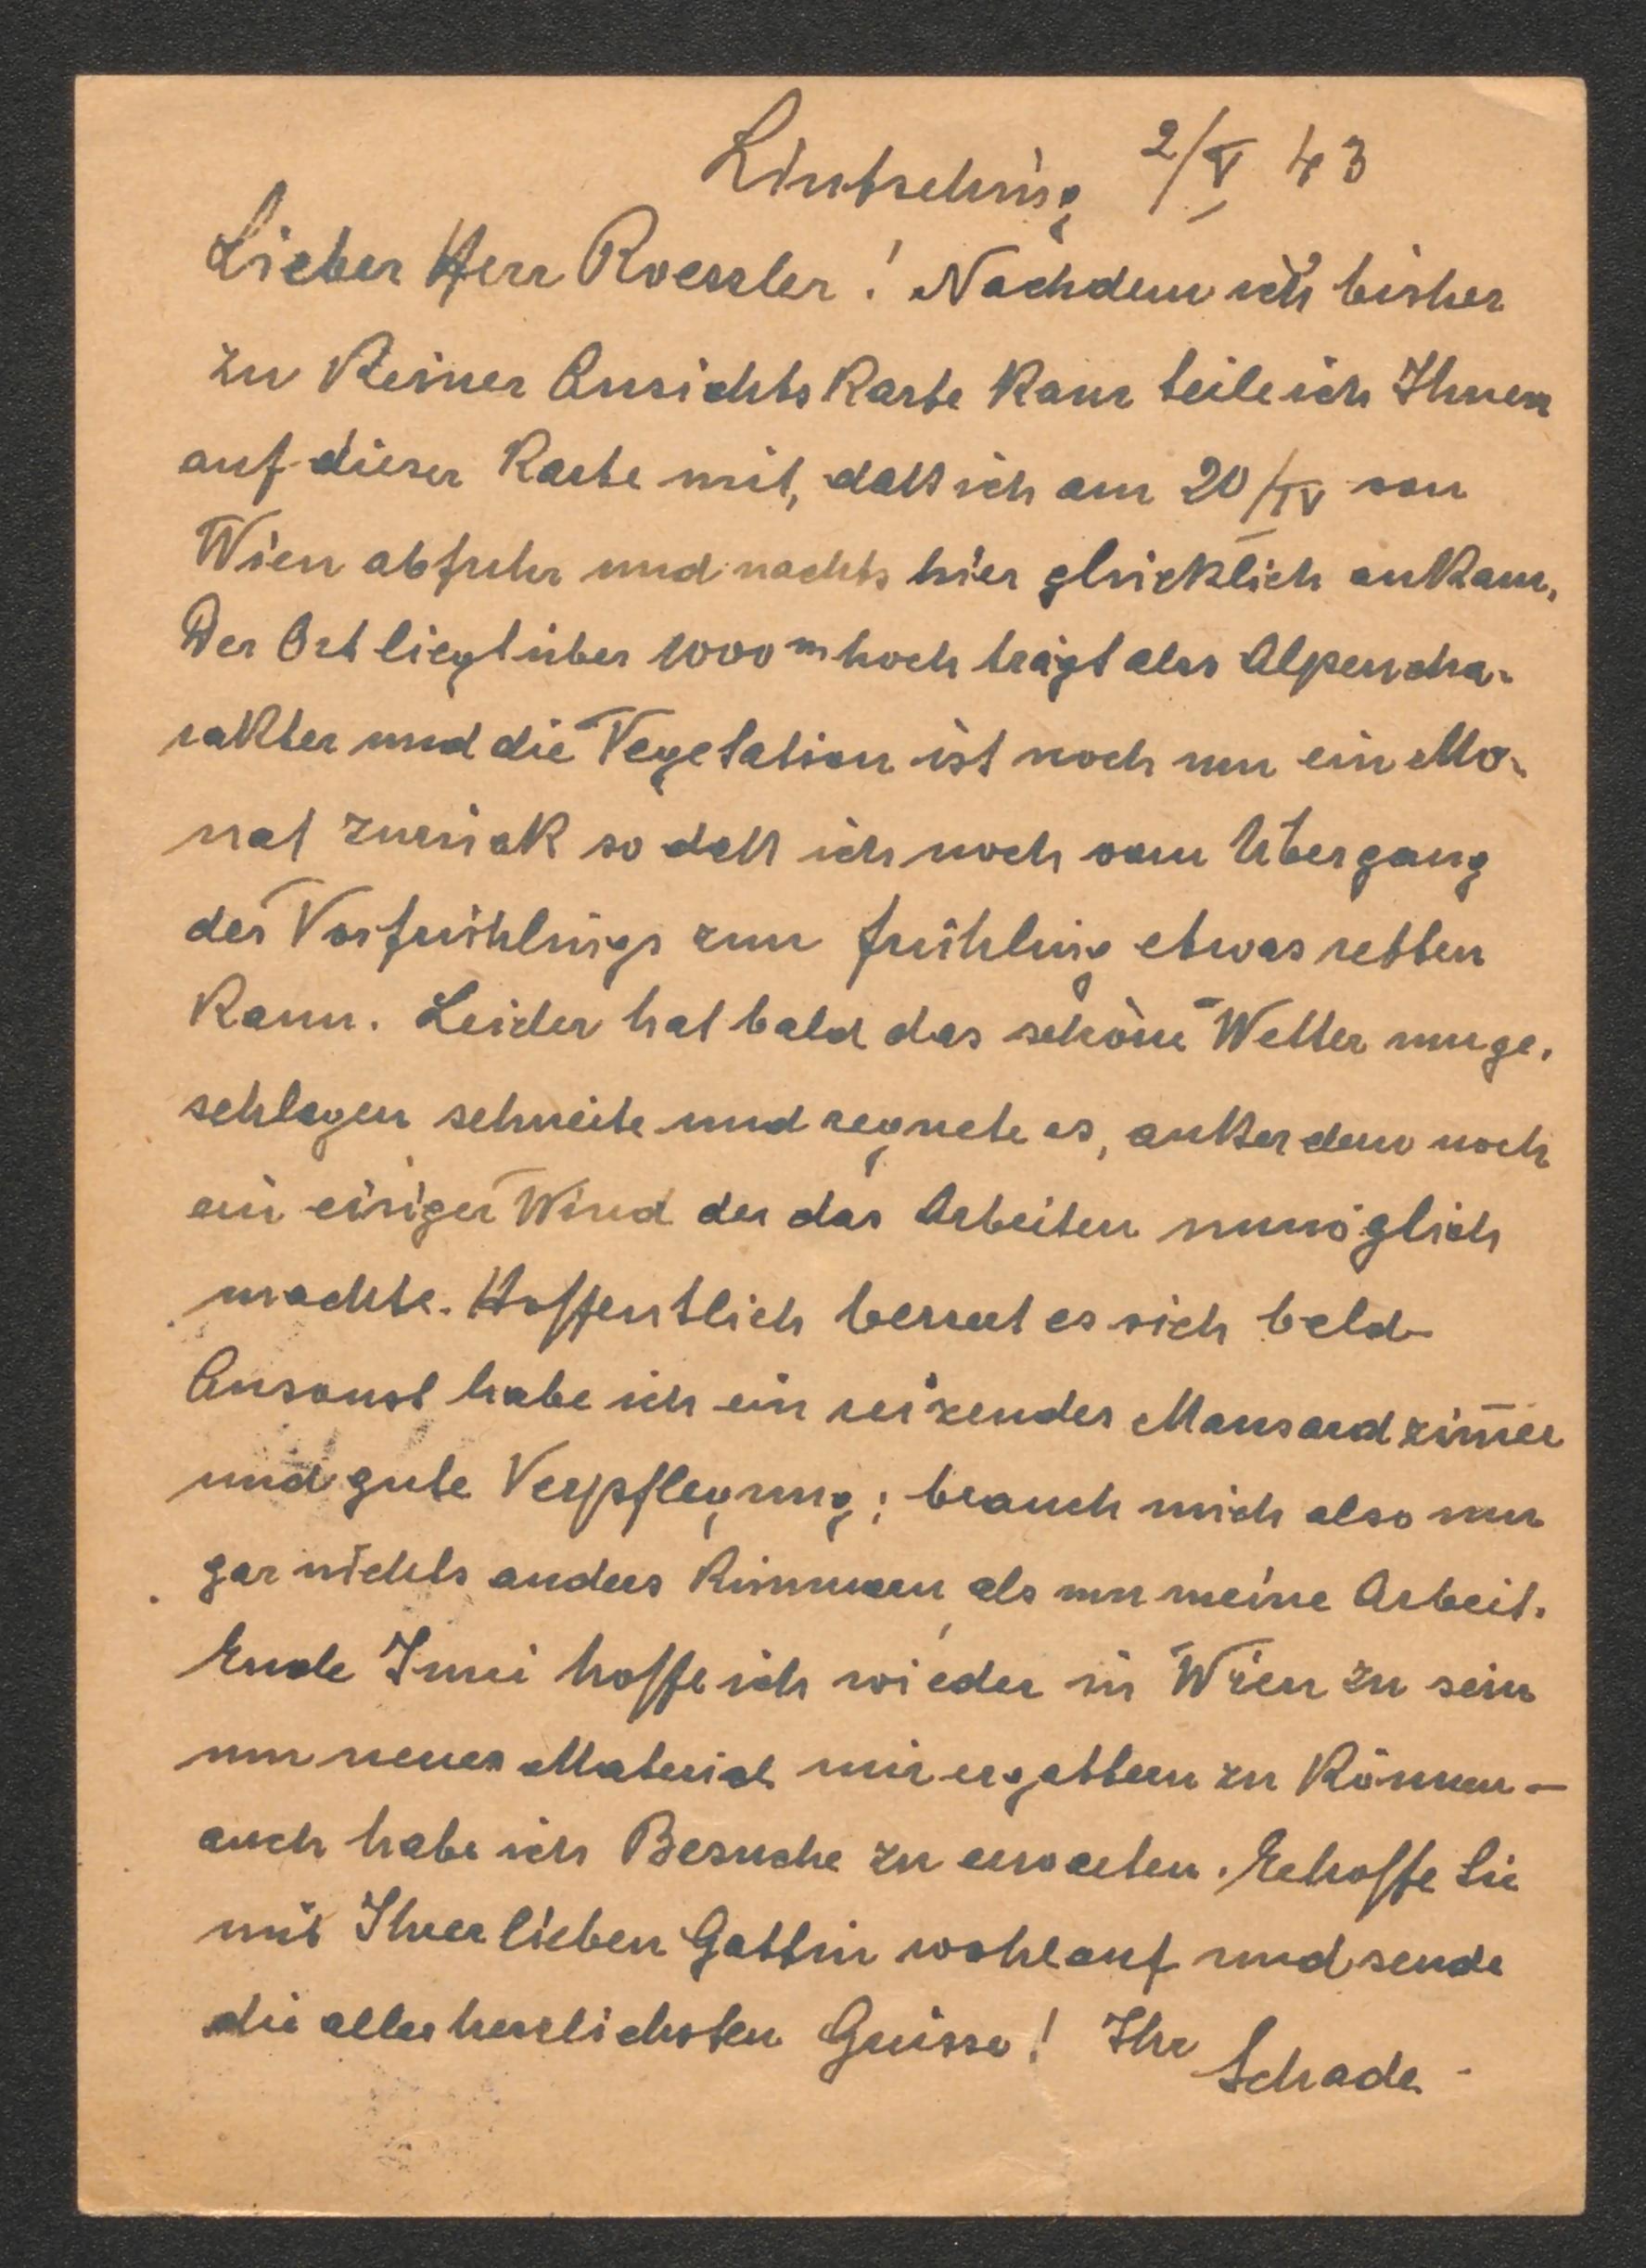 Lintsching 2/V 43
Lieber Herr Roessler! Nachdem ich bisher
zu keiner Ansichtskarte kam teile ich Ihnen
auf dieser Karte mit, daß ich am 20/IV von
Wien abfuhr und nachts hier glücklich ankam.
Der Ort liegt über 1000 m hoch trägt also Alpencha-
rakter und die Vegetation ist noch um ein Mo-
nat zurück so daß ich noch vom Übergang
des Vorfrühlings zum Frühling etwas retten
kann. Leider hat bald das schöne Wetter umge-
schlagen schneite und regnete es, außerdem noch
ein eisiger Wind der das Arbeiten unmöglich
machte. Hoffentlich bessert es sich bald
Ansonst habe ich ein reizendes Mansardzim̄er
und gute Verpflegung; brauch mich also um
gar nichts anders kümmern, als um meine Arbeit.
Ende Juni hoffe ich wieder in Wien zu sein
um neues Material mir ergattern zu können –
auch habe ich Besuche zu erwarten. Erhoffe Sie
mit Ihrer lieben Gattin wohlauf und sende
die allerherzlichsten Grüsse! Ihr Schade